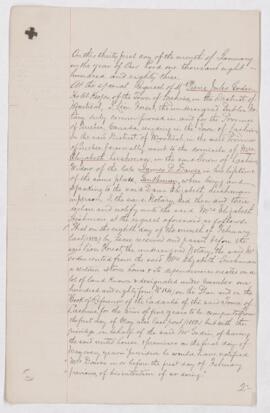 On this thirty first day of the month of January
in the year of Our Lord one thousand eight
hundred and eighty three.
At the special Request of Mr Pierre Jules Bodin
Hotel Keeper of the Town of Lachine, in the District of
Montreal, I Léon Forest, the undersigned Public No-
tary duly commissioned in and for the Province
of Quebec Canada residing in the Town of Lachine
in the said District of Montreal in the said Province
of Quebec personally went to the domicile of Mrs
Elizabeth Leishman, in the said Town of Lachine
Widow of the late James P. Dawes in his lifetime
of the same place Gentleman where being and
speaking to the said Dame Elizabeth Leishman
in person, I the said Notary did then and there
declare and notify unto the said Mrs Elizabeth
Leishman at the request aforesaid as follows:
That on the eighth day of the month of February
last (1882) by lease received and passed before the
said Léon Forest the undersigned Notary the said Mr
Bodin rented from the said Mrs Elizabeth Leishman
a certain stone house & its dependencies erected on a
lot of land known & designated under number one
hundred and eighty four No 184 on the Plan and in the
Book of Reference of the Cadastre of the said Town of
Lachine for the time of five years to be computed from
the first day of May also last past (1882) but with the
privilege on behalf of the said Mr Bodin of leaving
the said rented house & premises on the first day of
May every year provided he would have notified
Mrs Dawes on or before the first day of February
previous of his intention of so doing